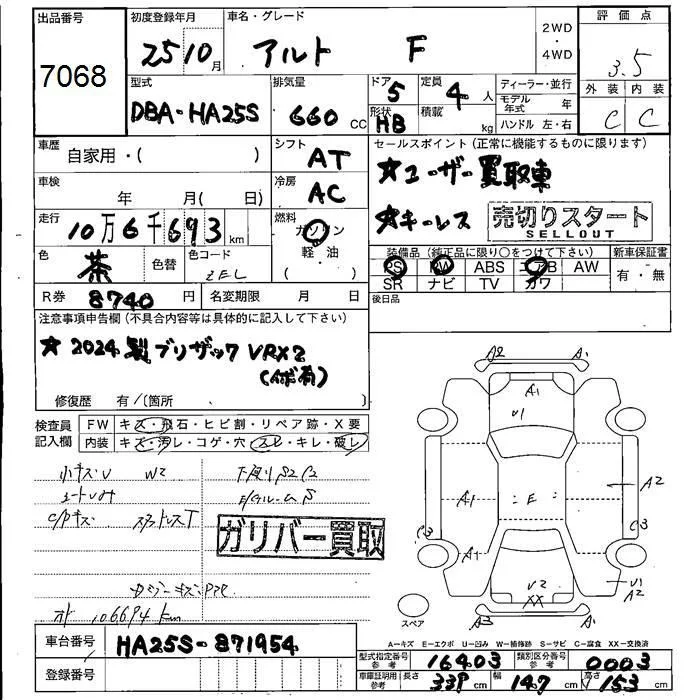 出品番号
7068
初度登録年月
25 10月
車名・グレード
アルト F
2WD・4WD
評価点
3.5
外装 内装
C C
型式
DBA-HA25S
排気量
660 CC
ドア 5
形状 HB
定員 4人
積載 kg
ディーラー・並行
モデル年式 年
ハンドル 左・右
車歴
自家用・( )
シフト
AT
セールスポイント(正常に機能するものに限ります)
★ユーザー買取車
★キーレス
売切りスタート
SELLOUT
車検
年 月( 日)
冷房
AC
走行
10万6千693km
燃料
ガソリン
軽・油
色
茶
色替
色コード
ZEL
装備品(純正品に限り○をつけて下さい)
PS PW ABS エアB AW
SR ナビ TV カワ
新車保証書
有・無
R券 8740円
名変期限 月 日
後日品
注意事項申告欄(不具合内容等は具体的に記入して下さい)
★2024製ブリザックVRX2
修復歴 有/(箇所 )
検査員記入欄
FW キズ・飛石・ヒビ割・リペア跡・X要
内装 キズ・汚レ・コゲ・穴・スレ・キレ・破レ
小キズV W2
下廻りS2C2
コートムラ
E/ルームS
C/Pキズ スタッドレスT
ガリバー買取
106694km
A2 A1
A1
U1
A1 E A2
C3 C3
A1
V2
XX
U1
A2
A3 A1
スペア
車台番号
HA25S-871954
登録番号
A-キズ E-エクボ U-凹み W-補修跡 S-サビ C-腐食 XX-交換済
型式指定番号 参考 16403
類別区分番号 参考 0003
車庫証明用 参考 長さ 339cm 幅 147cm 高さ 153cm